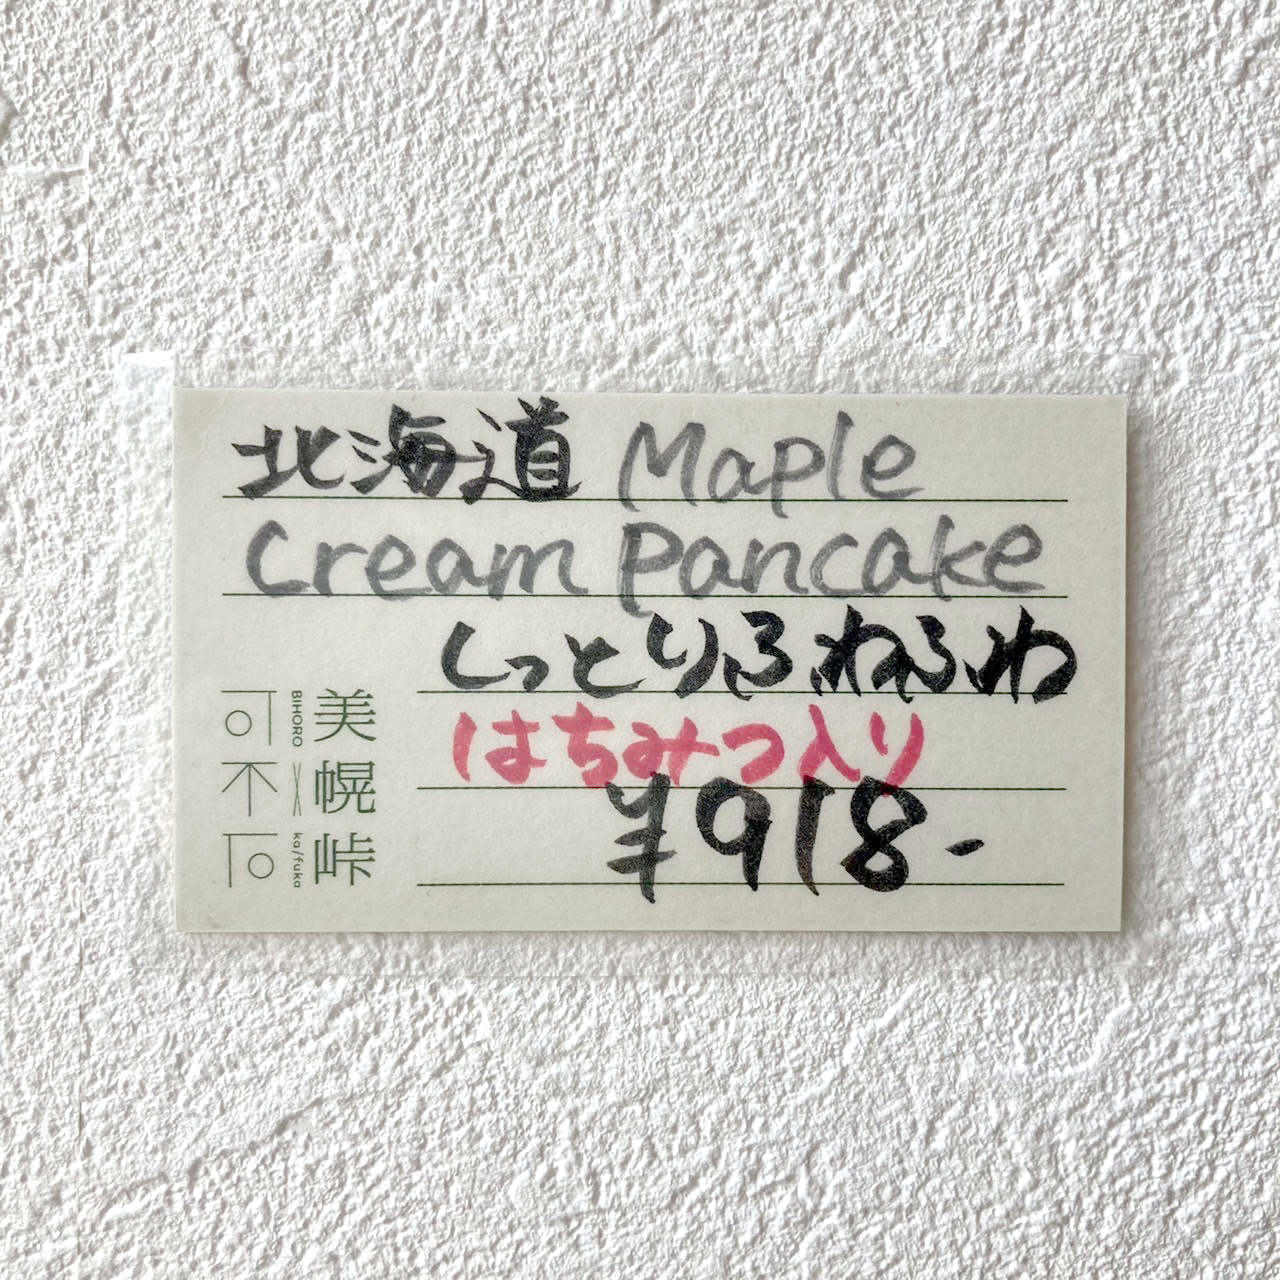 北海道 Maple
Cream Pancake
しっとりふわふわ
はちみつ入り
¥918-
美幌峠
BIHORO
ka/fuka
可不可